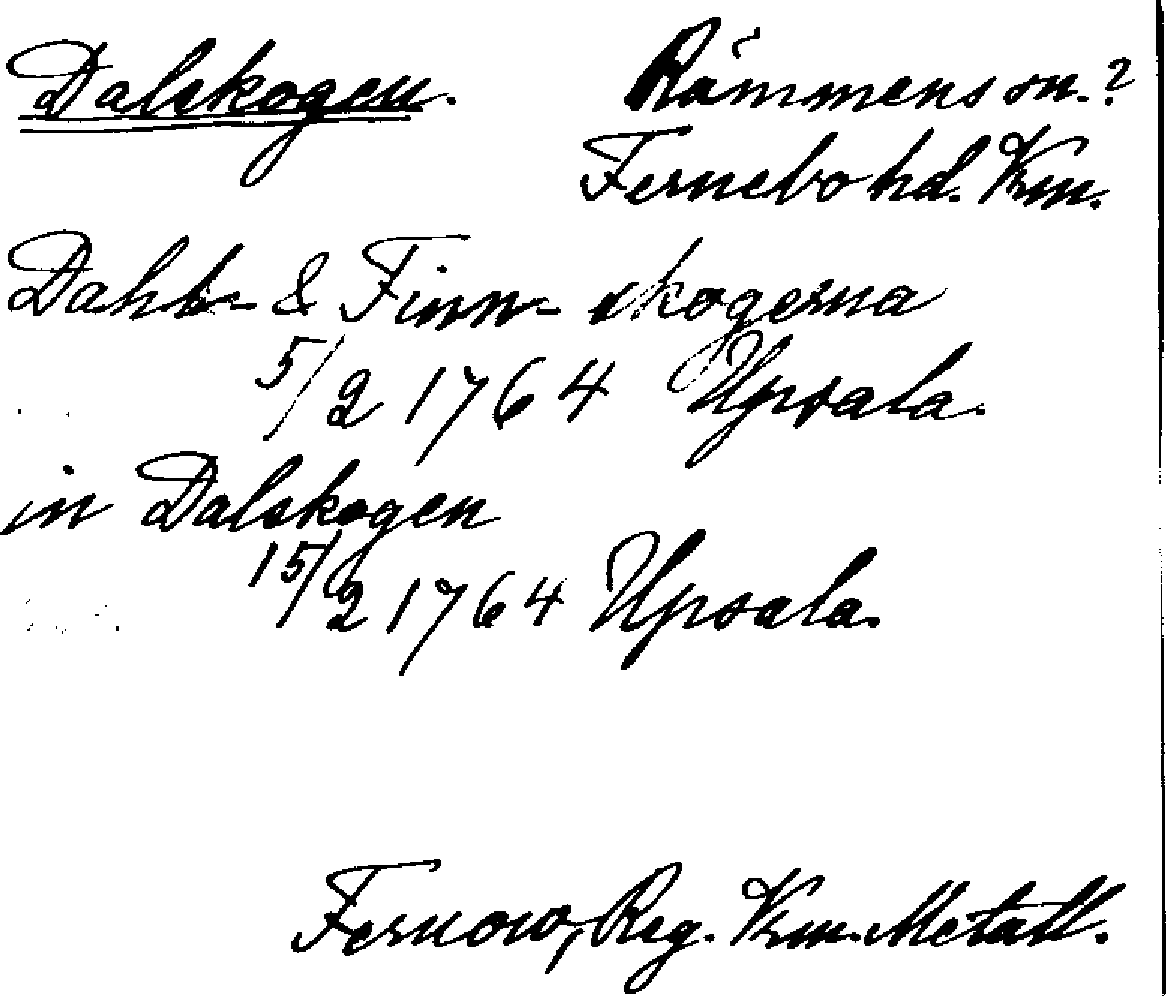 Dalskogen. Rämmens sn.?
Fernebo hd. Vrm.
Dahls- & Finn- skogerna
5/2 1764 Upsala.
in Dalskogen
15/2 1764 Upsala.
Fernow, Reg. Vrm. Metall.